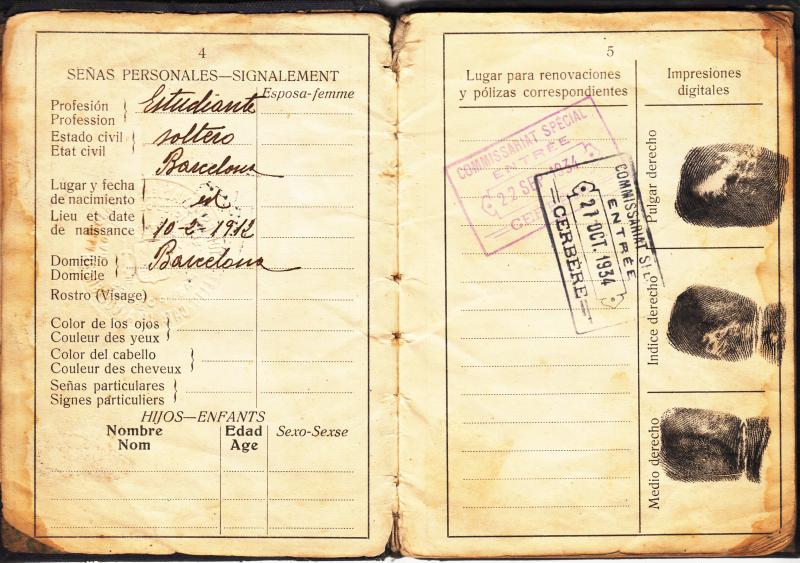 4
SEÑAS PERSONALES—SIGNALEMENT
Esposa-femme
Profesión
Profession
Estudiante
Estado civil
Etat civil
soltero
Barcelona
Lugar y fecha
de nacimiento
id
Lieu et date
de naissance
10-2-1912
Domicilio
Domicile
Barcelona
Rostro (Visage)
Color de los ojos
Couleur des yeux
Color del cabello
Couleur des cheveux
Señas particulares
Signes particuliers
HIJOS—ENFANTS
Nombre
Nom
Edad
Age
Sexo-Sexse
5
Lugar para renovaciones
y pólizas correspondientes
Impresiones
digitales
COMMISSARIAT SPÉCIAL
ENTRÉE
22 SEP 1934
CERBÈRE
COMMISSARIAT
ENTRÉE
27 OCT. 1934
CERBÈRE
Pulgar derecho
Indice derecho
Medio derecho